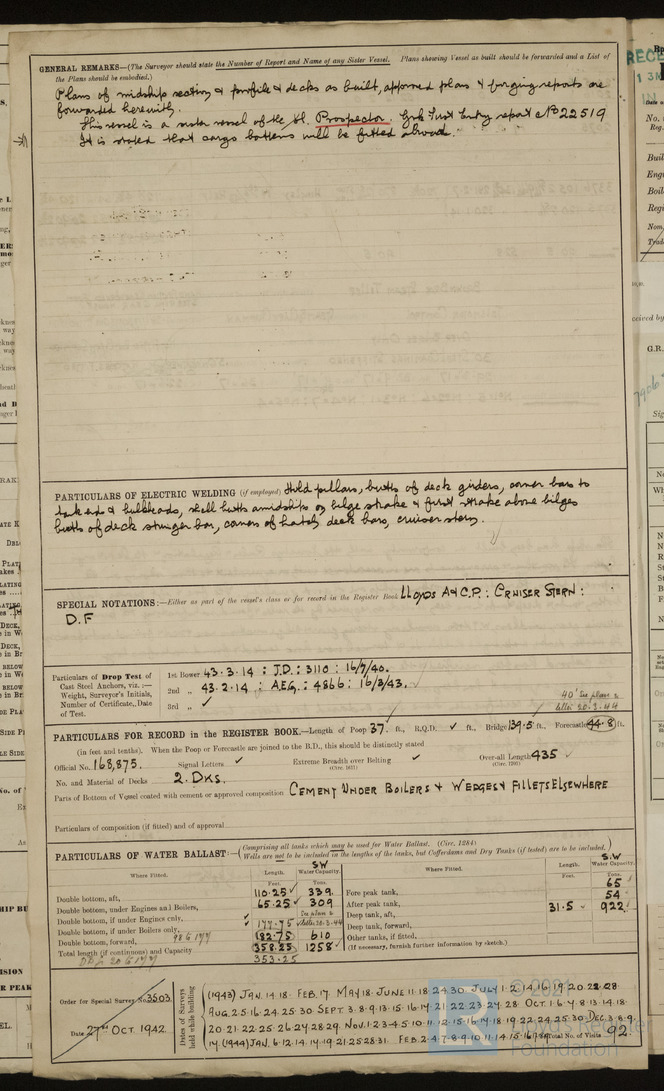 GENERAL REMARKS—(The Surveyor should state the Number of Report and Name of any Sister Vessel. Plans shewing Vessel as built should be forwarded and a List of
the Plans should be embodied.)
Plans of midship section & profile & decks as built, approved plans & forging reports are
forwarded herewith.
This vessel is a sister vessel of the Prospector. First Entry report No 22519
It is stated that cargo battens will be fitted aboard.
PARTICULARS OF ELECTRIC WELDING (if employed) Hold pillars, butts of deck girders, corner bars to
tank ends & bulkheads, shell butts amidships on bilge strake & first strake above bilges
butts of deck stringer bar, corners of hatch deck bars, cruiser stern.
SPECIAL NOTATIONS:—Either as part of the vessel's class or for record in the Register Book LLOYDS A & C.P. : CRUISER STERN :
D.F
Particulars of Drop Test of
Cast Steel Anchors, viz.:—
Weight, Surveyor's Initials,
Number of Certificate, Date
of Test.
1st Bower 43.3.14 : J.D. : 3110 : 16/7/40.
2nd „ 43.2.14 : A.E.G. : 4866 : 16/3/43.
3rd „ ✓
40' See plans &
letter 20.3.44
PARTICULARS FOR RECORD in the REGISTER BOOK.—Length of Poop 37. ft., R.Q.D. ✓ ft., Bridge 139.5 ft., Forecastle 44.8 ft.
(in feet and tenths). When the Poop or Forecastle are joined to the B.D., this should be distinctly stated
Official No. 168,875. Signal Letters ✓ Extreme Breadth over Belting ✓ Over-all Length 435
(Circ. 1611) (Circ. 1703)
No. and Material of Decks 2. DKS.
Parts of Bottom of Vessel coated with cement or approved composition CEMENT UNDER BOILERS & WEDGES & FILLETS ELSEWHERE
Particulars of composition (if fitted) and of approval
PARTICULARS OF WATER BALLAST:—(Comprising all tanks which may be used for Water Ballast. (Circ. 1284)
Wells are not to be included in the lengths of the tanks, but Cofferdams and Dry Tanks (if tested) are to be included.)
Where Fitted. Length. Feet. SW Water Capacity. Tons.
Double bottom, aft, 110.25 ✓ 339.
Double bottom, under Engines and Boilers, 65.25 ✓ 309
Double bottom, if under Engines only, ✓ See plans &
Double bottom, if under Boilers only, ✓ 177.75 ✓ letter 20.3.44
Double bottom, forward, 182.75 610
Total length (if continuous) and Capacity 358.25 1258
353.25
Where Fitted. Length. Feet. S.W Water Capacity. Tons.
Fore peak tank, 65
After peak tank, 54
Deep tank, aft, 31.5 ✓ 922
Deep tank, forward,
Other tanks, if fitted,
(If necessary, furnish further information by sketch.)
Order for Special Survey No. 3503.
Date 27TH OCT. 1942.
Dates of Surveys
held while building
(1943) JAN. 14.18. FEB. 17. MAY 18. JUNE 11.18.24.30. JULY 1.2.14.16.19.20.22.28
AUG. 2.5.16.24.25.30 SEPT. 3.8.9.13.15.16.17.21.22.23.27.28 OCT. 1.6.7.8.13.14.18.
20.21.22.25.26.27.28.29 NOV. 1.2.3.4.5.10.11.12.15.16.17.18.19.22.24.25.30 DEC. 3.8.9.
14. (1944) JAN. 6.12.14.17.19.21.25.28.31. FEB. 2.4.7.8.9.10.11.14.15.16. Total No. of Visits 92.
© 2021
Lloyd's Register
Foundation